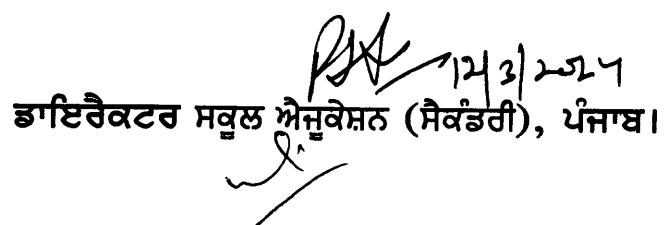 12/3/2024
ਡਾਇਰੈਕਟਰ ਸਕੂਲ ਐਜੂਕੇਸ਼ਨ (ਸੈਕੰਡਰੀ), ਪੰਜਾਬ।